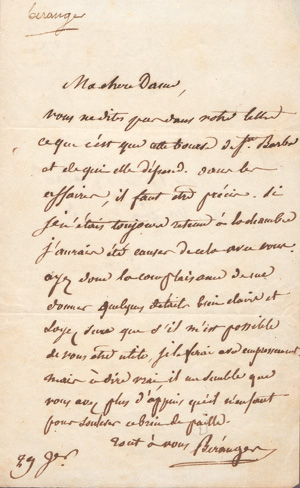 béranger
Ma chere Dame,
vous ne dites pas dans votre lettre
ce que c'est que cette bourse de Ste Barbe
et de qui elle dépend. dans les
affaires, il faut être précis. Si
je n'étais toujours retenu à la chambre
j'aurais été causer de cela avec vous.
ayez donc la complaisance de me
donner quelques détails bien clairs et
soyez sure que s'il m'est possible
de vous être utile, je le ferai avec empressement.
mais à dire vrai, il me semble que
vous avez plus d'appuis qu'il n'en faut
pour soulever ce brin de paille.
tout à vous Béranger
29